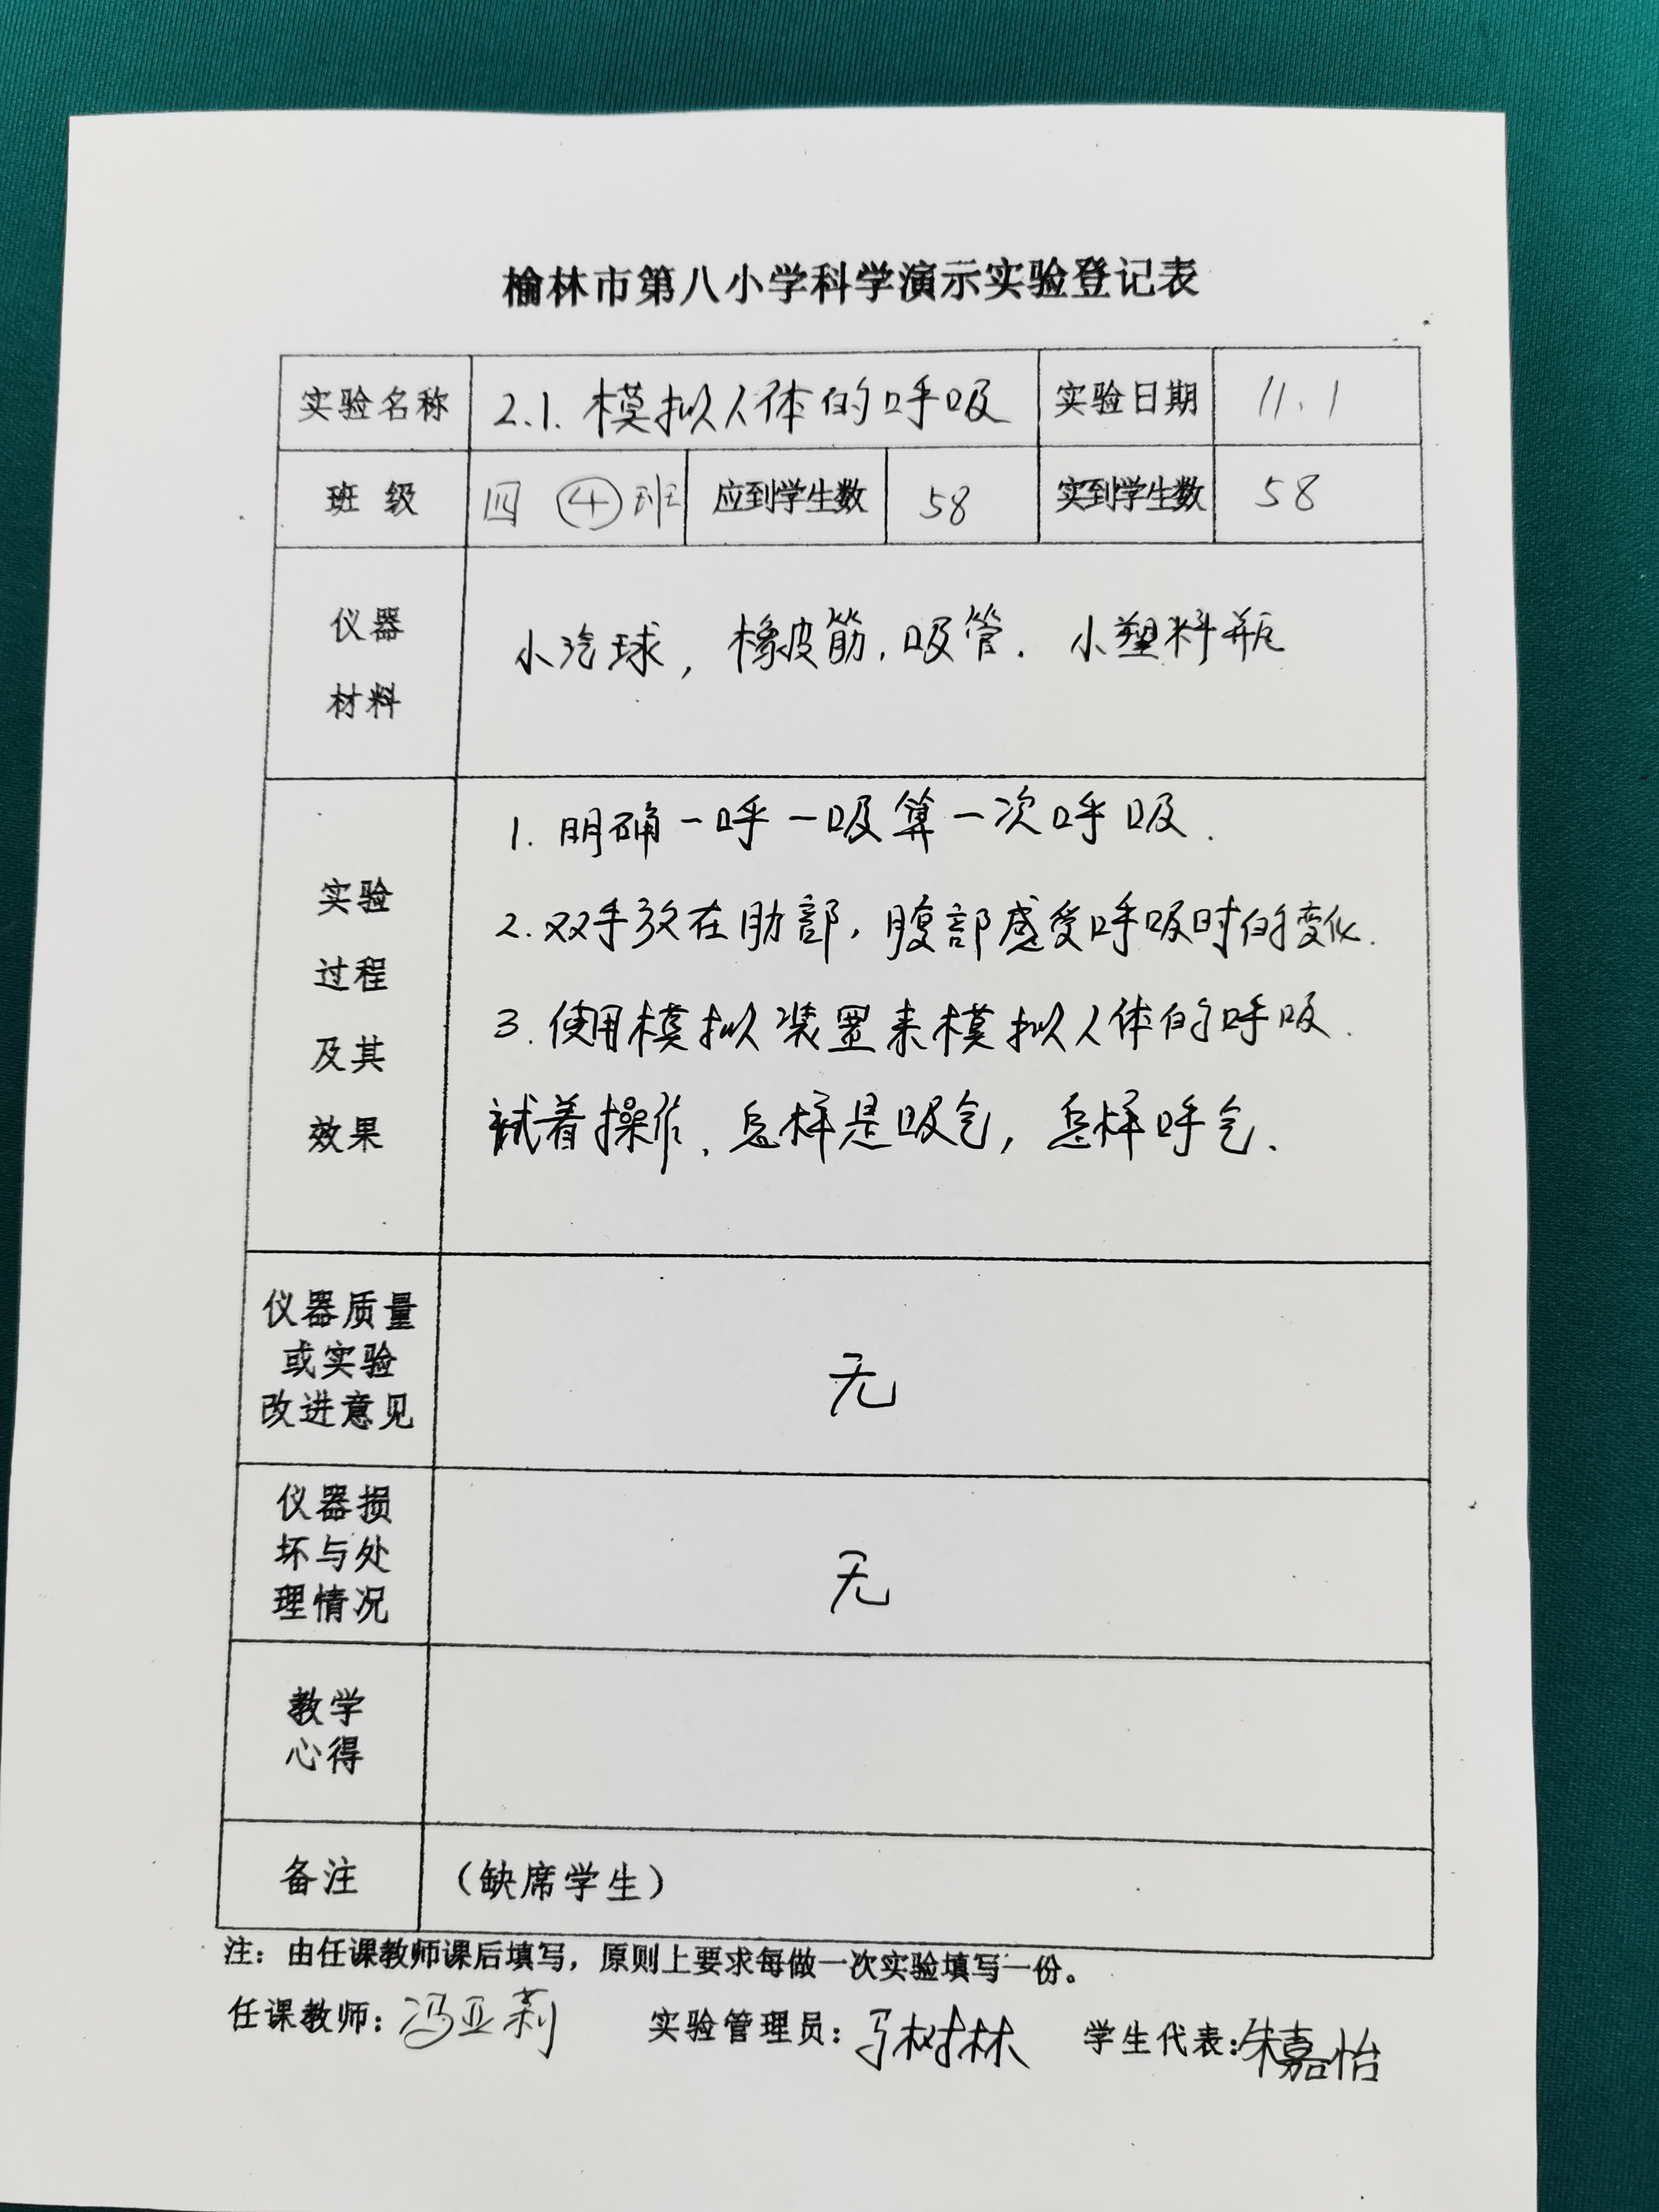 榆林市第八小学科学演示实验登记表
实验名称 2.1. 模拟人体的呼吸 实验日期 11.1
班 级 四 ④班 应到学生数 58 实到学生数 58
仪器
材料
小汽球, 橡皮筋. 吸管. 小塑料瓶
实验
过程
及其
效果
1. 明确一呼一吸算一次呼吸.
2. 双手放在肋部, 腹部感受呼吸时的变化.
3. 使用模拟装置来模拟人体的呼吸.
试着操作. 怎样是吸气, 怎样呼气.
仪器质量
或实验
改进意见
无
仪器损
坏与处
理情况
无
教学
心得
备注 (缺席学生)
注：由任课教师课后填写，原则上要求每做一次实验填写一份。
任课教师：冯亚莉 实验管理员：马树林 学生代表：朱嘉怡